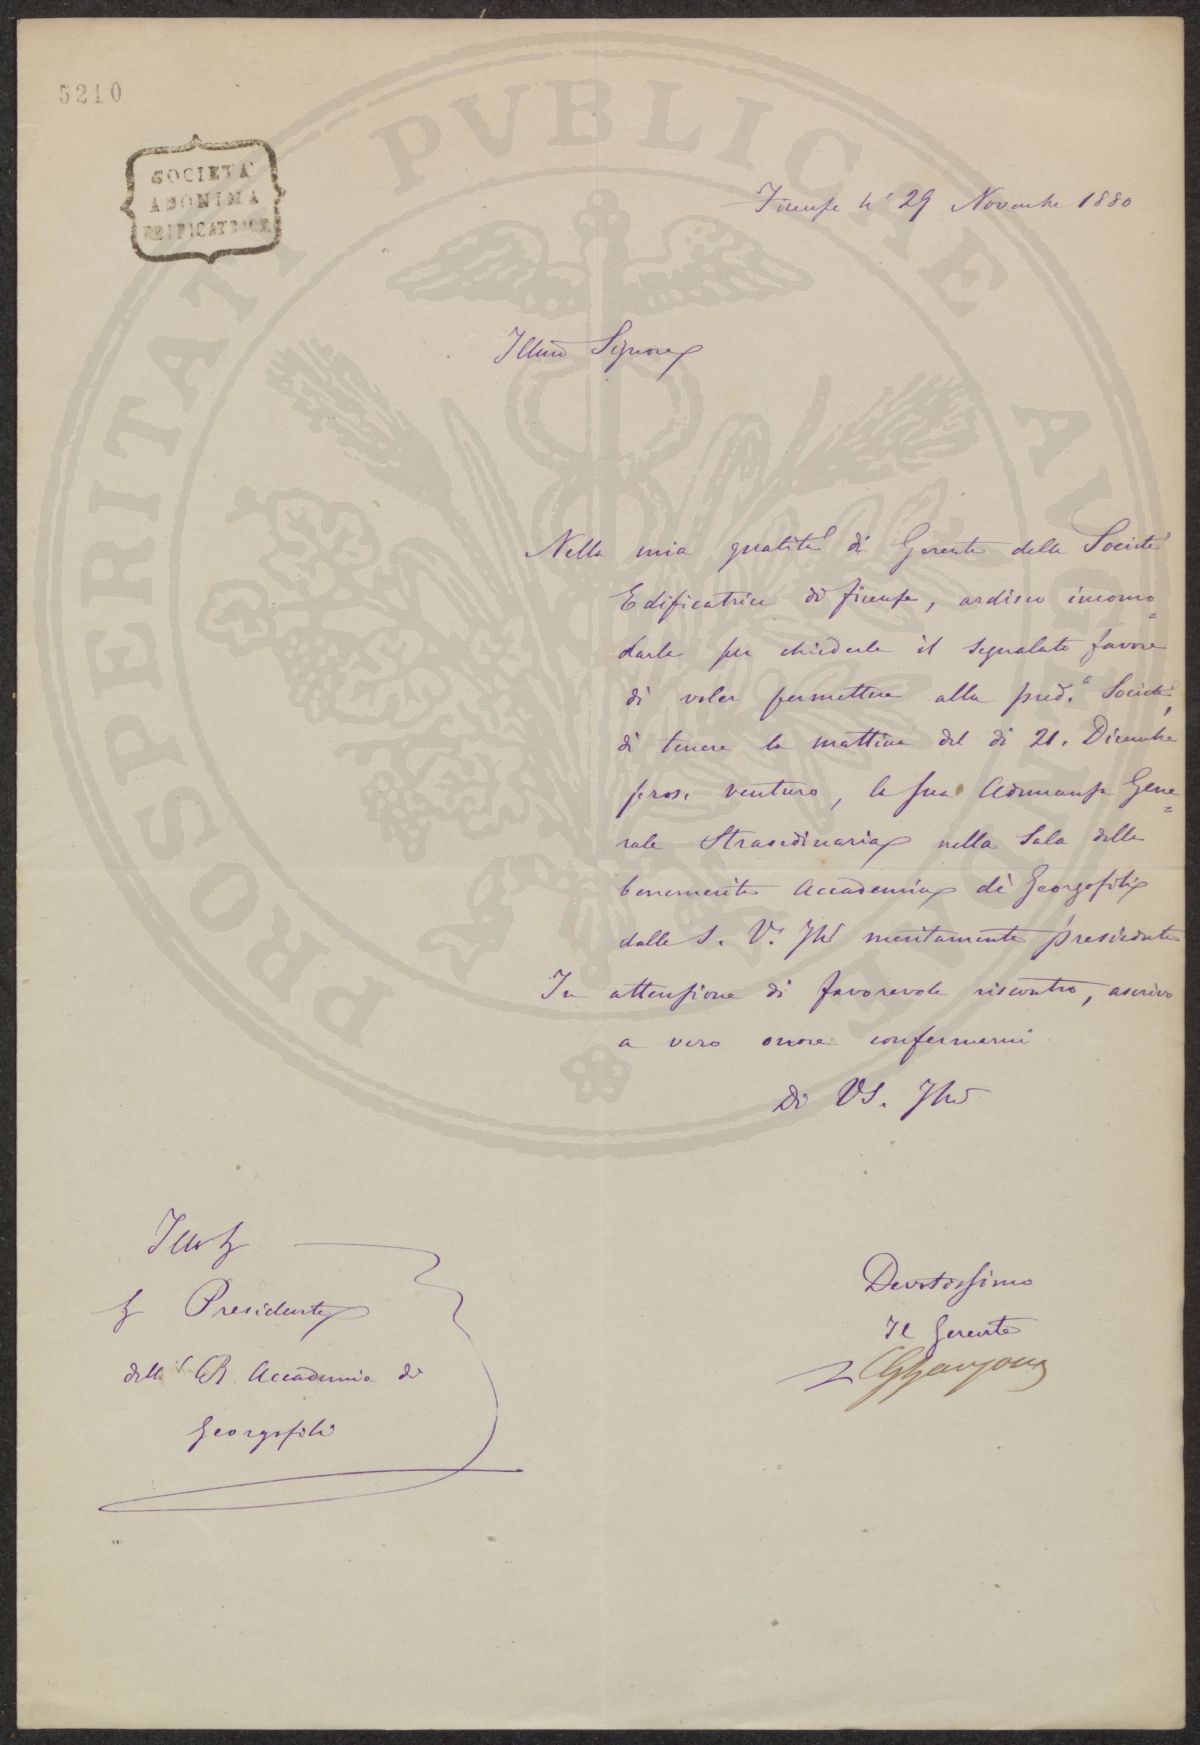 5210
SOCIETÀ
ANONIMA
EDIFICATRICE
PROSPERITATI PVBLICAE AVGENDAE
Firenze li 29 Novembre 1880
Illmo Signore
Nella mia qualità di Gerente della Società
Edificatrice di Firenze, ardisco incomo=
darla per chiederle il segnalato favore
di voler permettere alla pred.a Società,
di tenere la mattina del dì 21. Dicembre
pros. venturo, la sua Adunanza Gene=
rale Straordinaria nella Sala della
benemerita Accademia dei Georgofili
dalla S. V. Illma meritamente presieduta
In attenzione di favorevole riscontro, ascrivo
a vero onore confermarmi
Di VS. Illma
Devotissimo
Il Gerente
Illmo Sig
Sig Presidente
della R Accademia dei
Georgofili